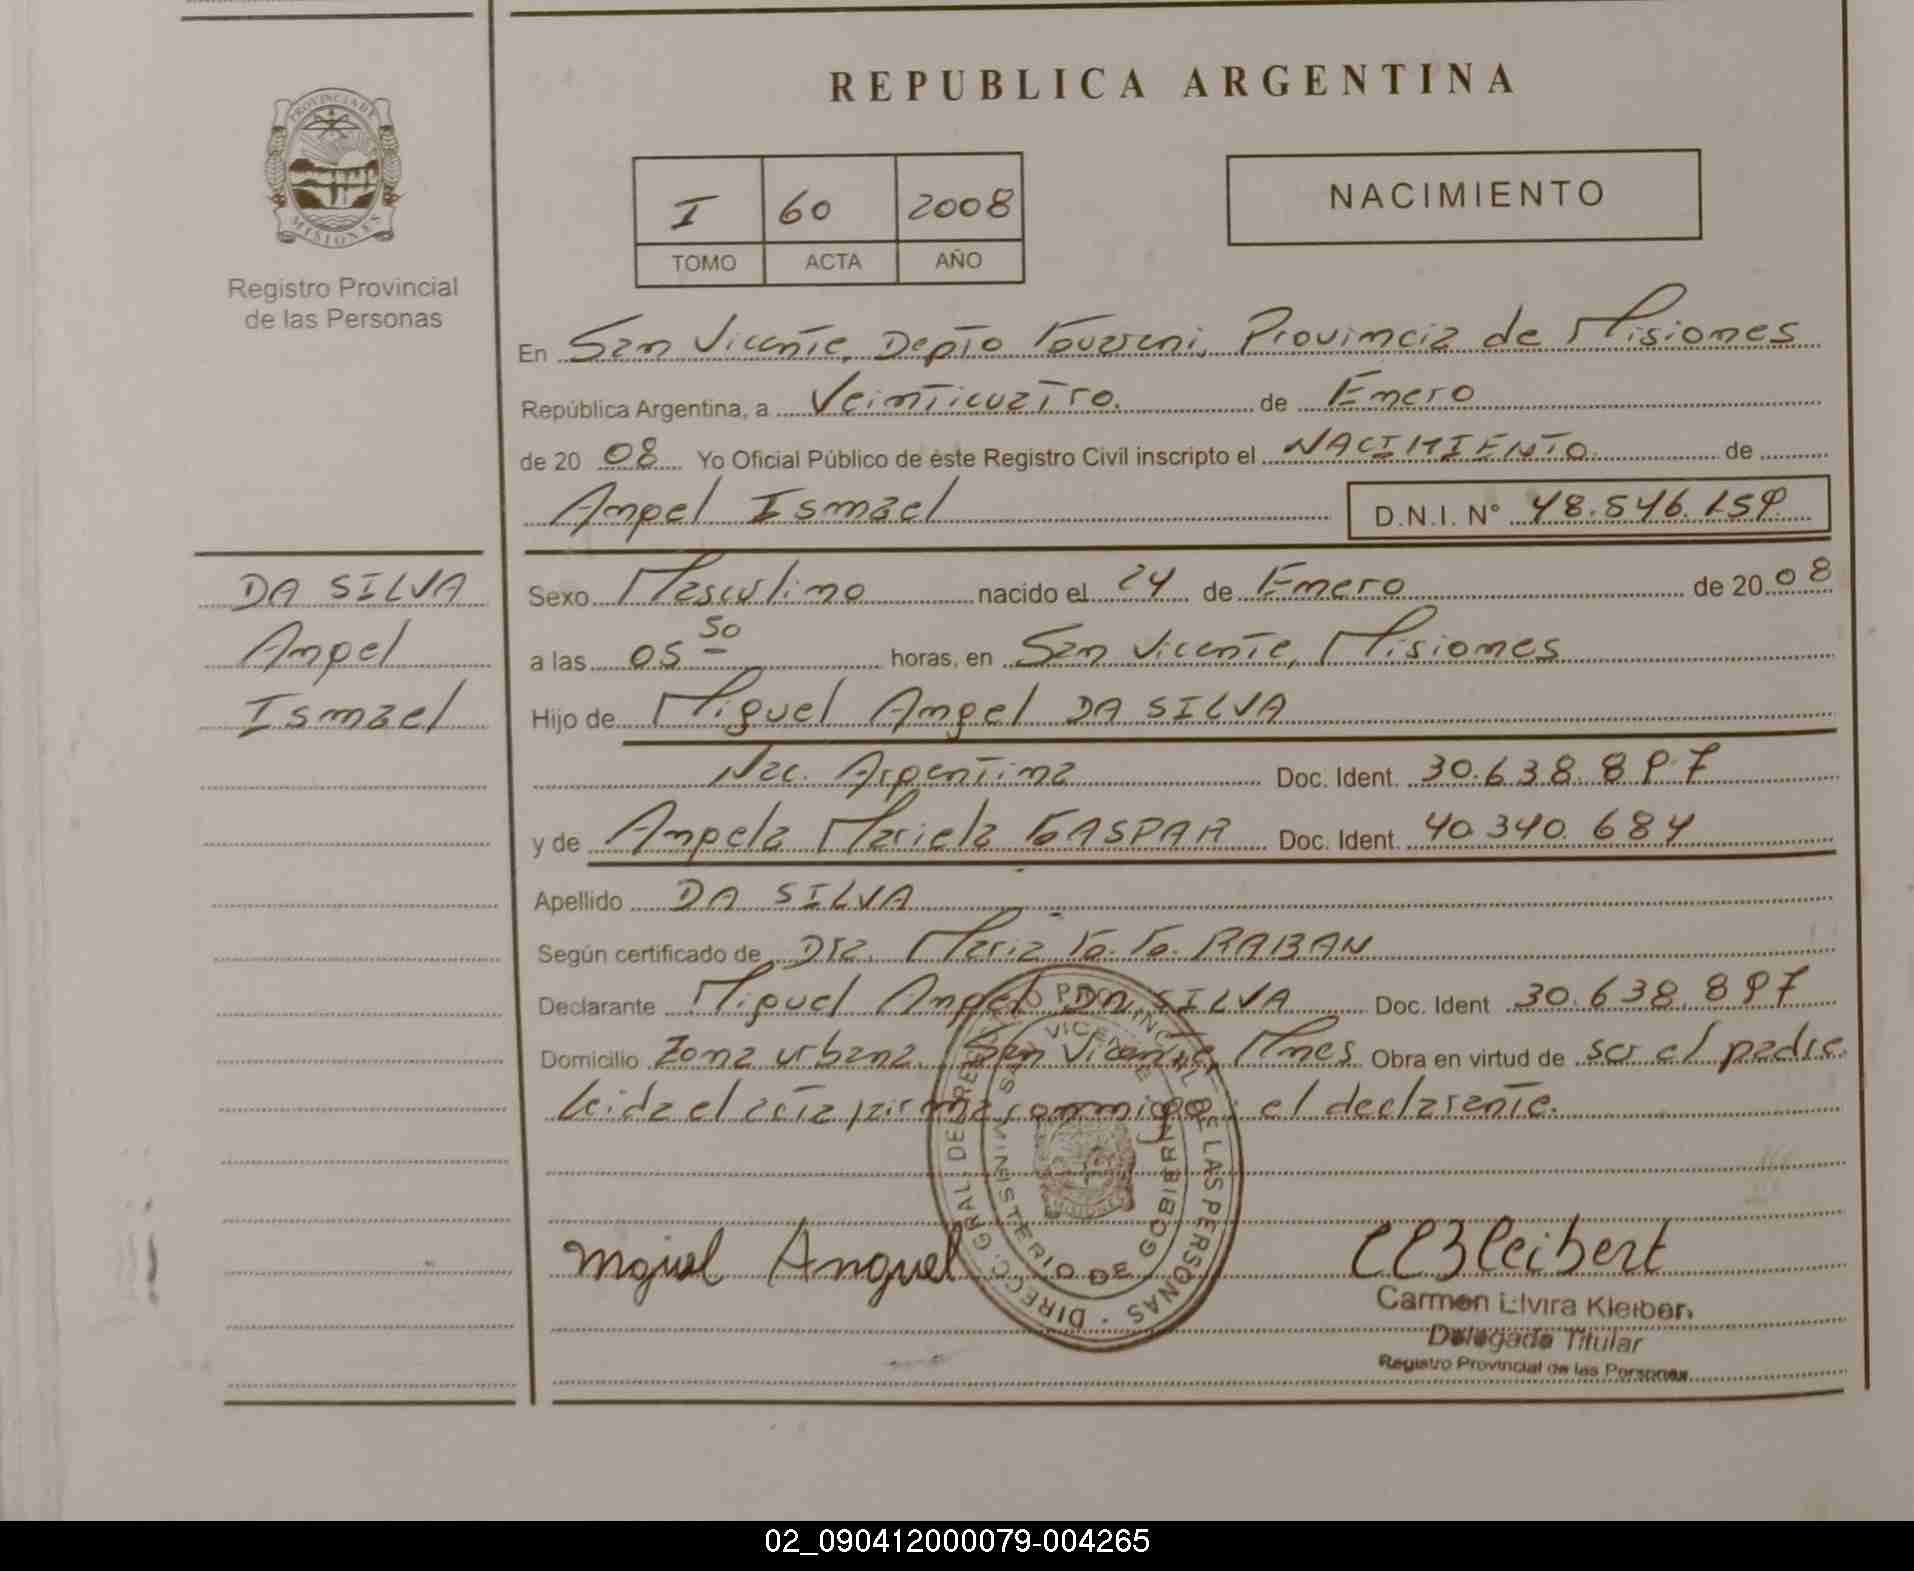 REPUBLICA ARGENTINA
PROVINCIA DE
MISIONES
Registro Provincial
de las Personas
I 60 2008
TOMO ACTA AÑO
NACIMIENTO
En San Vicente, Depto Guarani, Provincia de Misiones
República Argentina, a Veinticuatro. de Enero
de 20 08 Yo Oficial Público de éste Registro Civil inscripto el NACIMIENTO. de
Angel Ismael D.N.I. N° 48.546.159
DA SILVA
Angel
Ismael
Sexo Masculino nacido el 24 de Enero de 20 08
a las 05 50 horas, en San Vicente, Misiones
Hijo de Miguel Angel DA SILVA
Nac. Argentina Doc. Ident. 30.638.897
y de Angela Mariela GASPAR Doc. Ident. 40.340.684
Apellido DA SILVA
Según certificado de Dra. Maria G. G. RABAN
Declarante Miguel Angel DA SILVA Doc. Ident 30.638.897
Domicilio Zona urbana. San Vicente, Mnes. Obra en virtud de ser el padre.
Leida el acta firma conmigo el declarante.
DIRECC. GRAL. DE REGISTRO PROVINCIAL DE LAS PERSONAS
SAN VICENTE
MINISTERIO DE GOBIERNO
MISIONES
Mguel Anguel
CEKleibert
Carmen Elvira Kleiber
Delegada Titular
Registro Provincial de las Personas
02_090412000079-004265